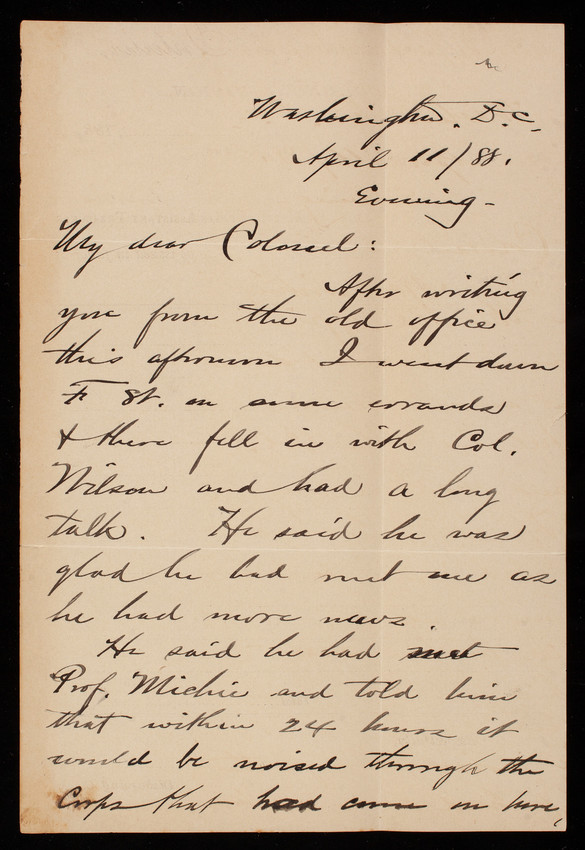 Washington, D.C.,
April 11/88.
Evening -
My dear Colonel:
After writing
you from the old office
this afternoon I went down
F St. on some errands
& there fell in with Col.
Wilson and had a long
talk. He said he was
glad he had met me as
he had more news.
He said he had met
Prof. Michie and told him
that within 24 hours it
would be noised through the
Corps that had come on here,